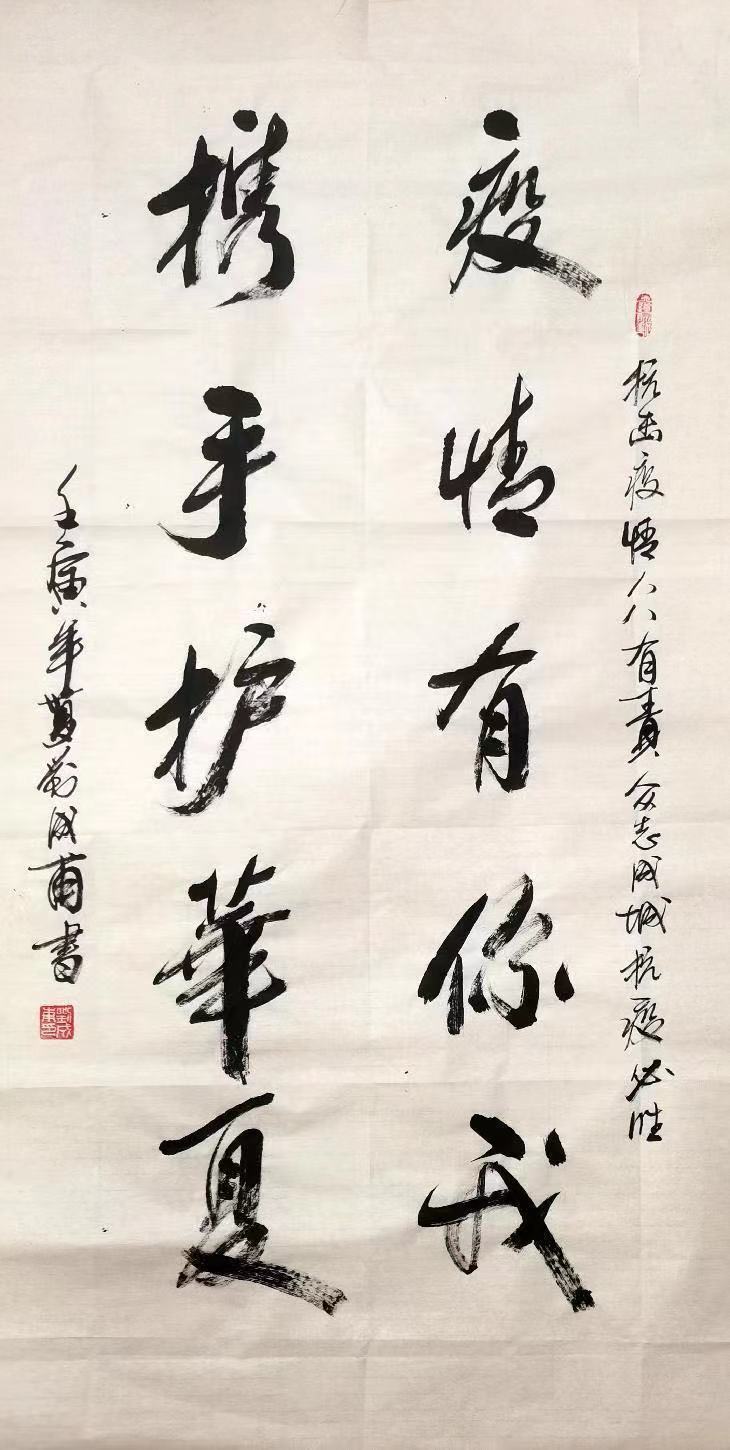 抗击疫情人人有責众志成城抗疫必胜
疫情有你我
携手护華夏
壬寅年 刘成 書
劉成東印